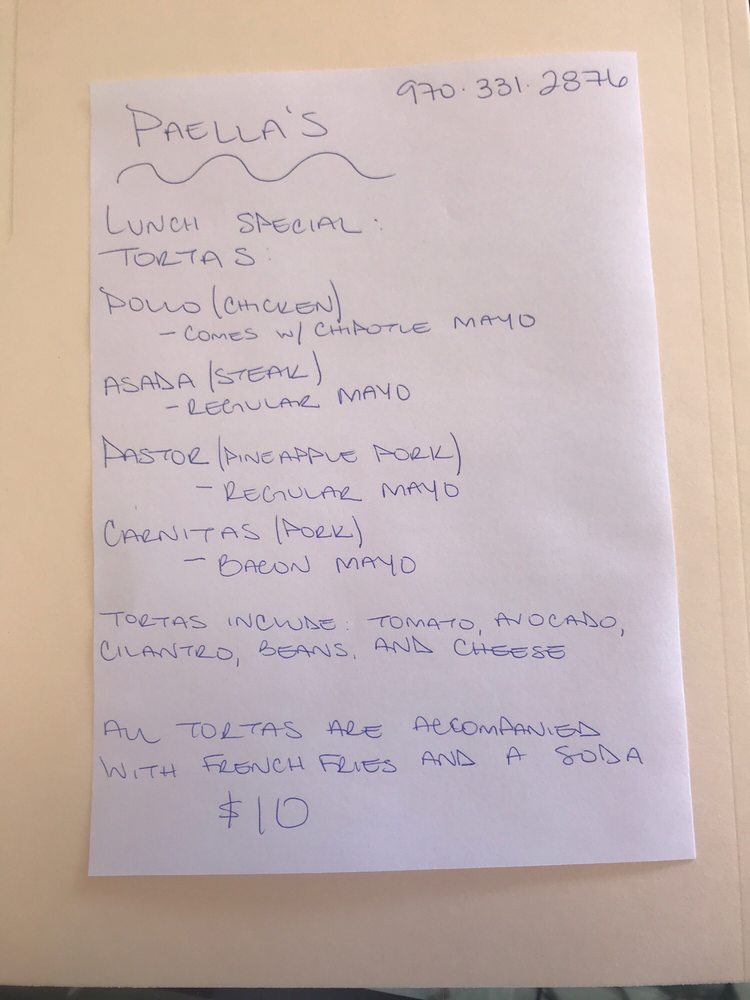 970.331.2876
PAELLA'S
LUNCH SPECIAL:
TORTAS:
POLLO (CHICKEN)
- COMES W/ CHIPOTLE MAYO
ASADA (STEAK)
- REGULAR MAYO
PASTOR (PINEAPPLE PORK)
- REGULAR MAYO
CARNITAS (PORK)
- BACON MAYO
TORTAS INCLUDE: TOMATO, AVOCADO,
CILANTRO, BEANS, AND CHEESE
ALL TORTAS ARE ACCOMPANIED
WITH FRENCH FRIES AND A SODA
$10